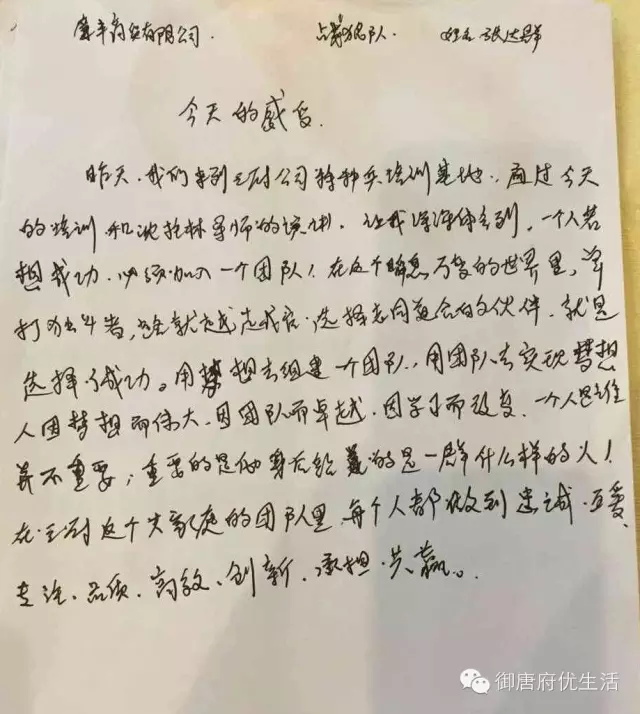 商贸有限公司. 战狼队. 姓名 张达群
今天的感受.
昨天,我们来到王府公司特种兵培训基地,通过今天
的培训和沈 林导师的演讲,让我深深体会到,一个人若
想成功,必须加入一个团队!在这个瞬息万变的世界里,单
打独斗者,路就越走越窄,选择志同道合的伙伴,就是
选择了成功。用梦想去组建一个团队,用团队去实现梦想
人因梦想而伟大,因团队而卓越,因学习而改变,一个人是谁
并不重要,重要的是他身后 的是一群什么样的人!
在王府这个大家庭的团队里,每个人都做到忠诚.互爱,
专注、品质、高效、创新、承担、共赢。
御唐府优生活